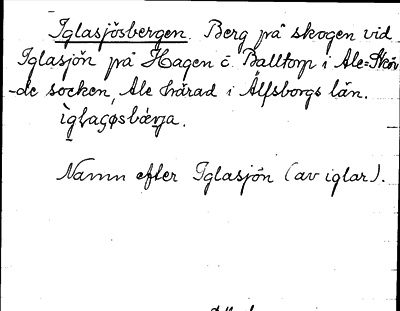 Iglasjösbergen. Berg på skogen vid
Iglasjön på Hagen o. Balltorp i Ale=Sköv-
de socken, Ale härad i Älfsborgs län.
ìglaʂøsbæ̀rja.
Namn efter Iglasjön (av iglar).